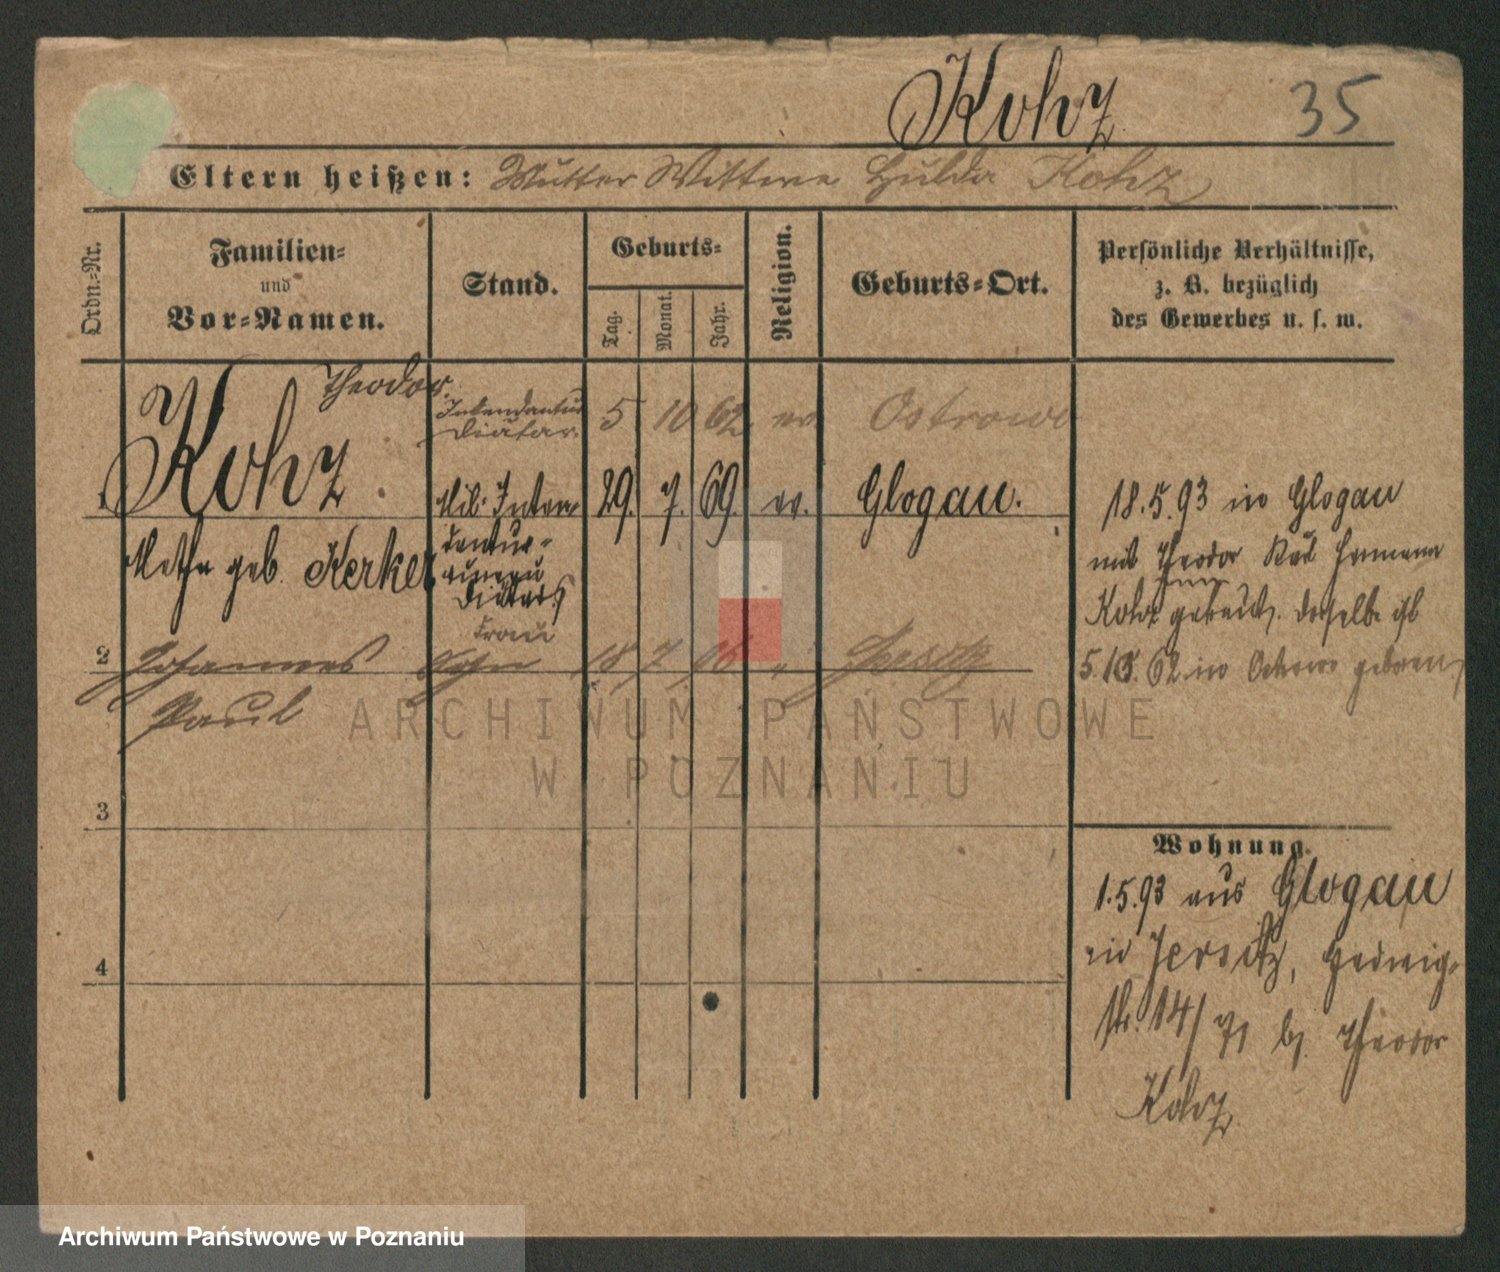 Kohz 35
Eltern heißen: Mutter Wittwe Hulda Kohz
Ordn.-Nr.
Familien-
und
Vor-Namen.
Stand.
Geburts-
Tag.
Monat.
Jahr.
Religion.
Geburts-Ort.
Persönliche Verhältnisse,
z. B. bezüglich
des Gewerbes u. s. w.
Theodor
Intendantur
Diätar
5 10 62 ev. Ostrowo
Kohz
Mil. Inten
29. 7. 69. ev. Glogau.
dantur-
Diätars
Frau
geb. Kerker
18.5.93 in Glogau
mit Theodor Karl Hermann
Kohz getraut. derselbe ist
5. 10. 62 in Ostrowo geboren
2 Johannes Sohn 18 7 96 " Jersitz
Paul
3
4
Wohnung.
1.5.93 aus Glogau
in Jersitz, Hedwig-
str. 14/ b. Theodor
Kohz
ARCHIWUM PAŃSTWOWE
W POZNANIU
Archiwum Państwowe w Poznaniu